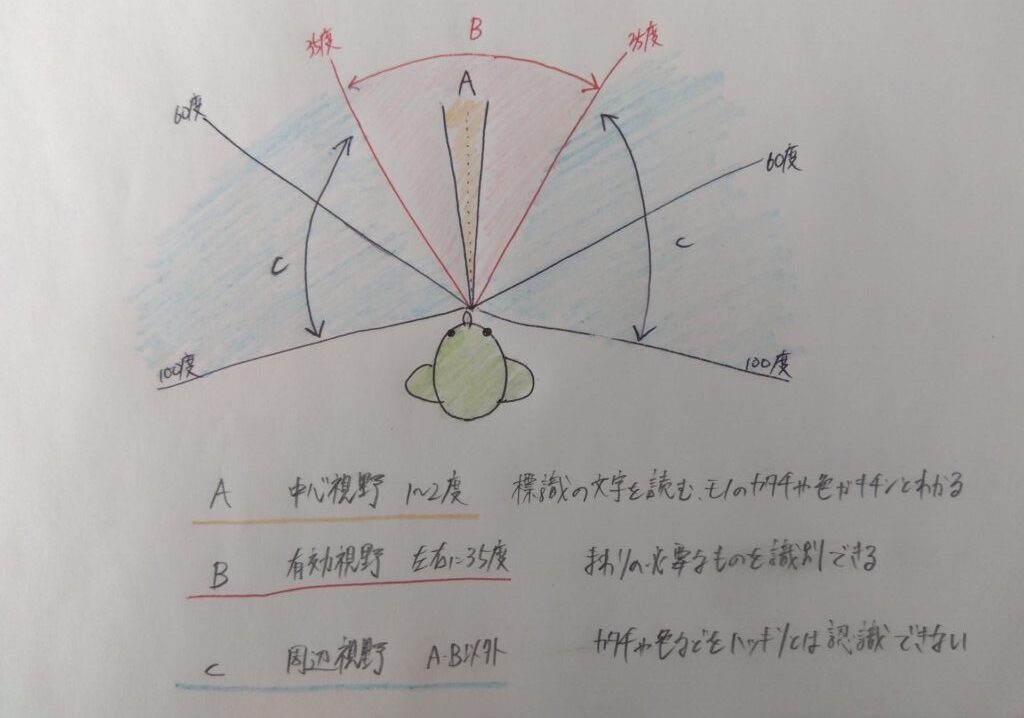 B
35度
35度
A
60度
60度
C
C
100度
100度
A 中心視野 1~2度 標識の文字を読む、モノのカタチや色がキチンとわかる
B 有効視野 左右に35度 まわりの必要なものを識別できる
C 周辺視野 A・B以外 カタチや色などをハッキリとは認識できない